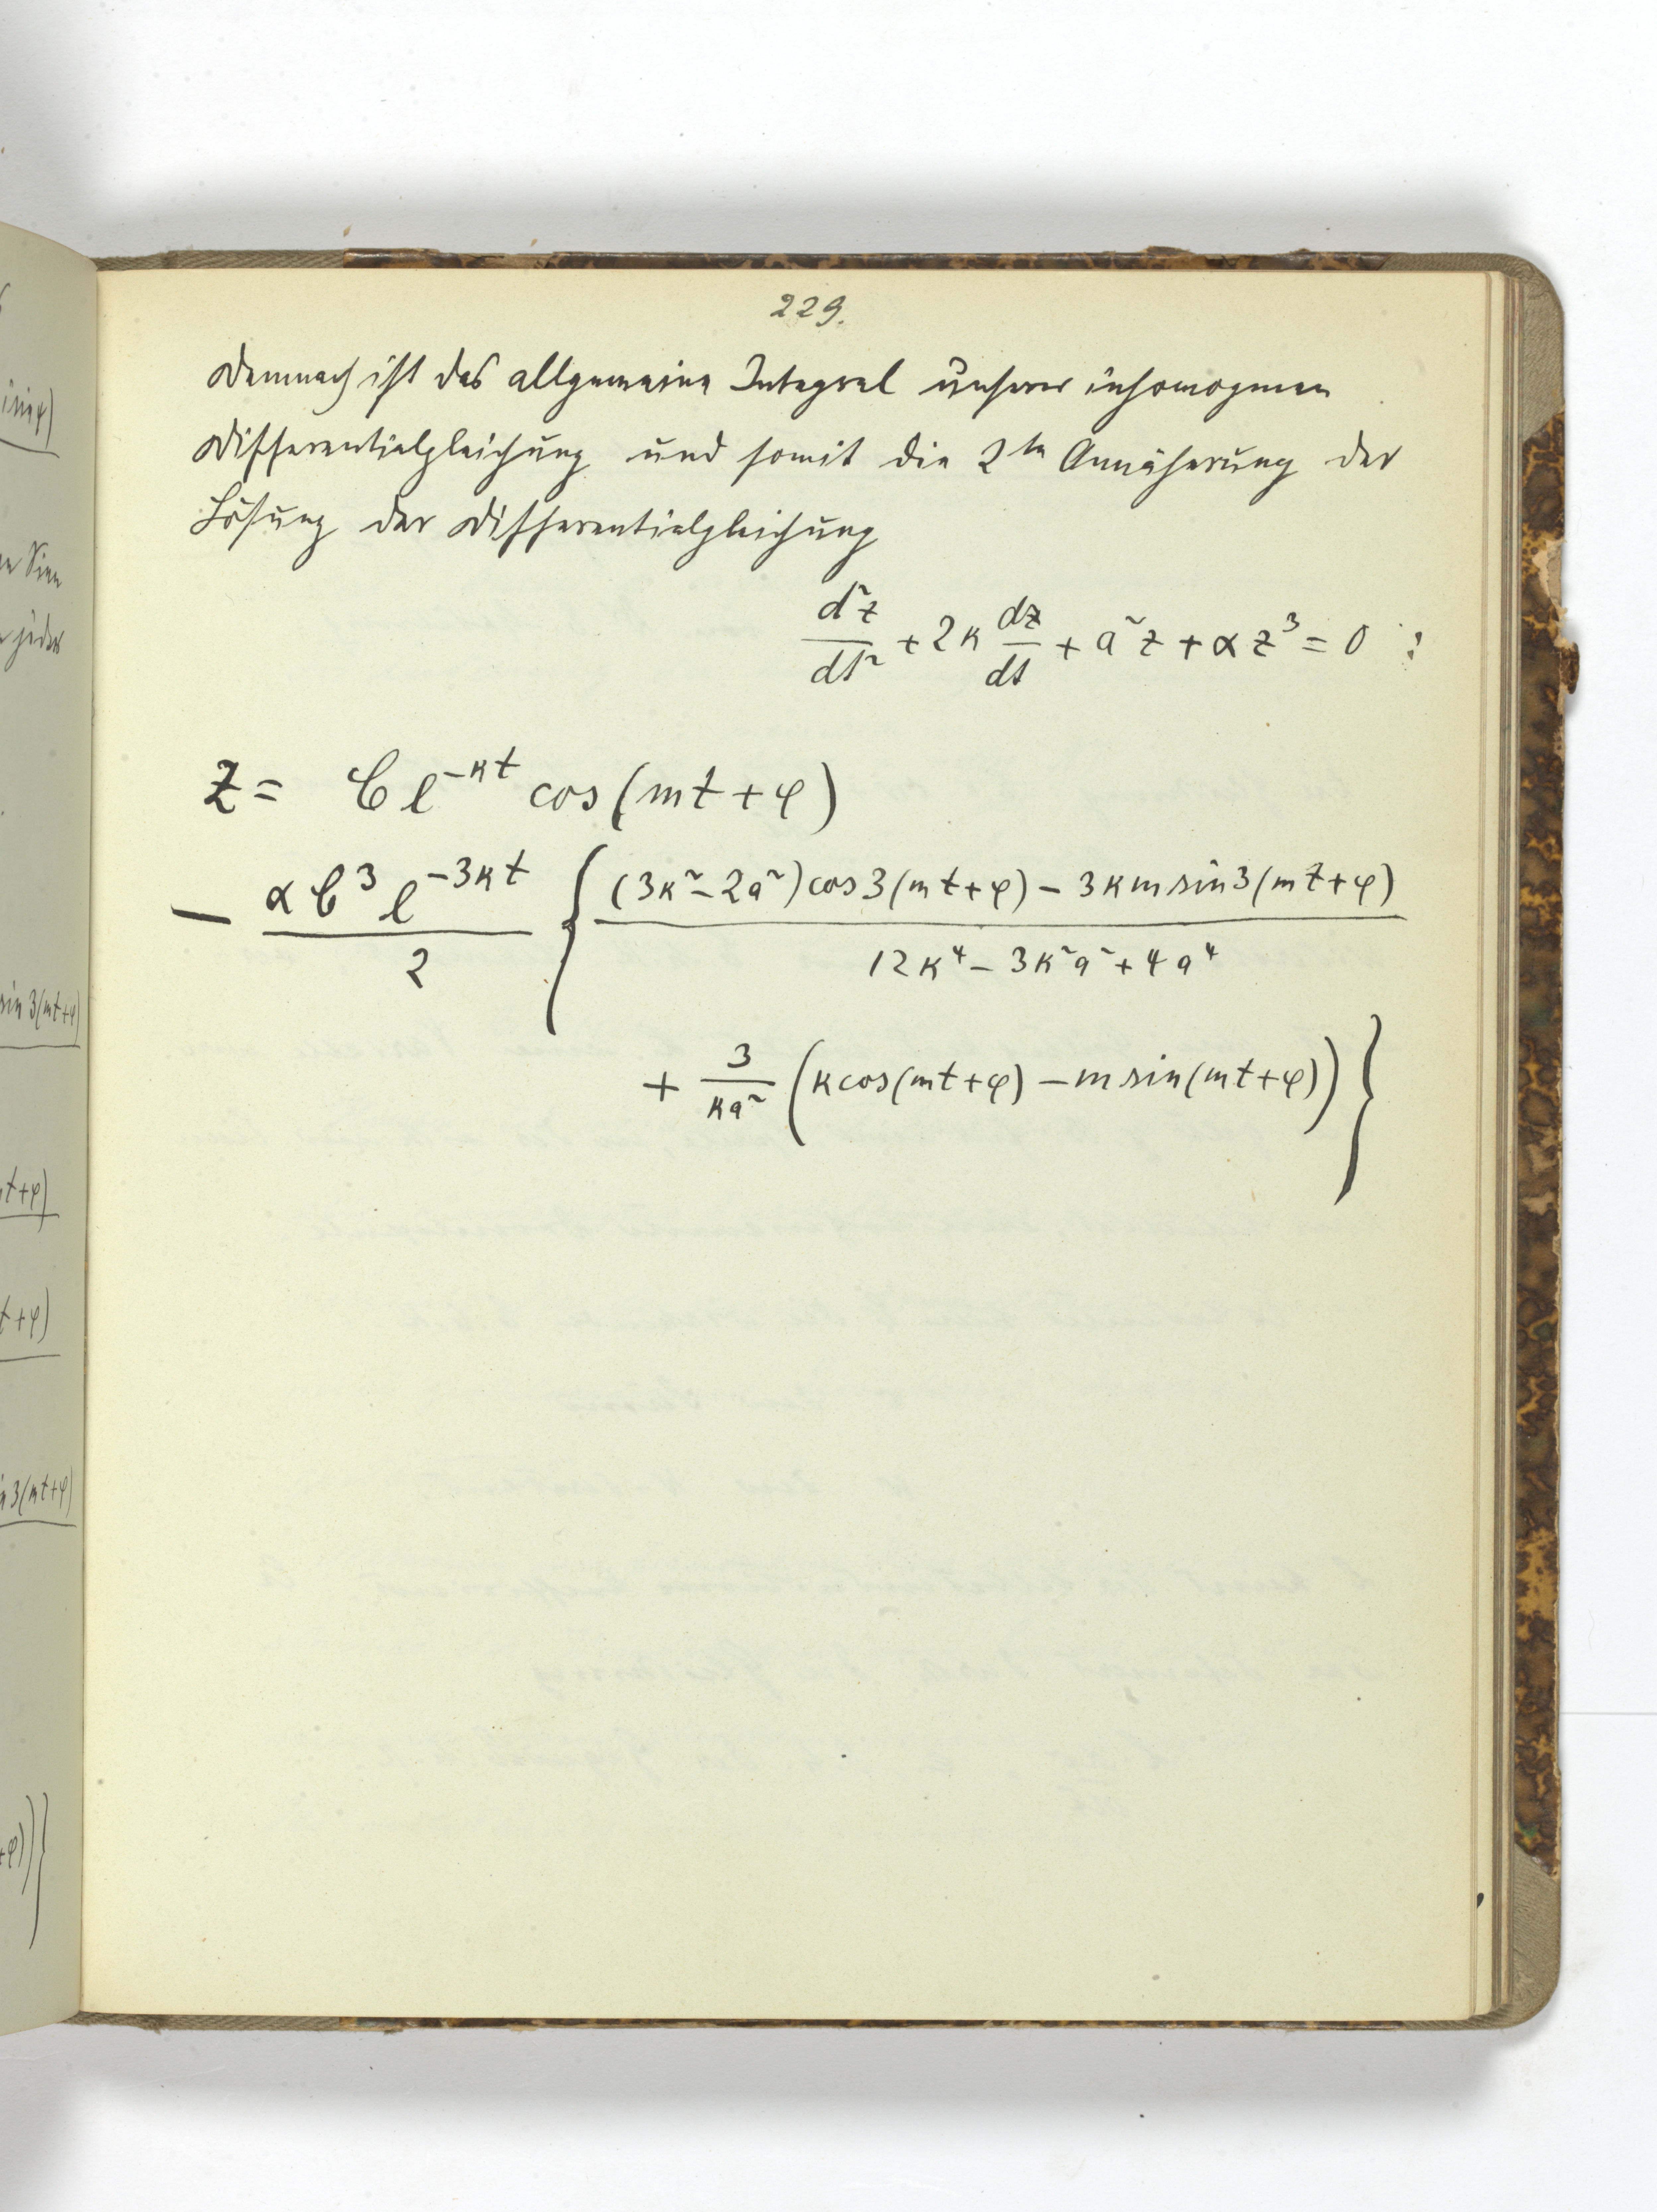 229.
Demnach ist das allgemeine Integral unserer inhomogenen
Differentialgleichung und somit die 2te Annäherung der
Lösung der Differentialgleichung
d²z/dt² + 2κ dz/dt + a²z + αz³ = 0 :
z = C e^{-κt} cos(mt+φ)
- αC³e^{-3κt}/2 { ((3κ²-2a²)cos3(mt+φ) - 3κm sin3(mt+φ))/(12κ⁴ - 3κ²a² + 4a⁴)
+ 3/(κa²) (κcos(mt+φ) - m sin(mt+φ)) }